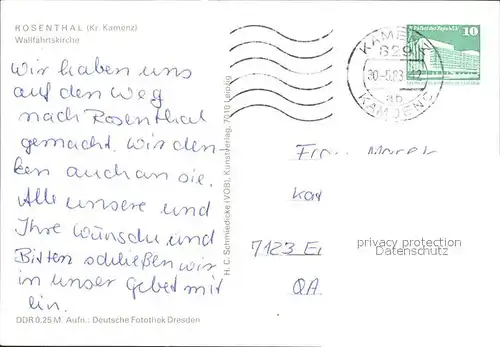 ROSENTHAL (Kr. Kamenz)
Wallfahrtskirche
Wir haben uns
auf den Weg
nach Rosenthal
gemacht. Wir den-
ken auch an sie.
Alle unsere und
Ihre Wünsche und
Bitten schließen wir
in unser Gebet mit
ein.
DDR 0,25 M. Aufn.: Deutsche Fotothek Dresden
H. C. Schmiedicke (VOB), Kunstverlag, 7010 Leipzig
KAMENZ
829
30.-5.83
ap
KAMJENC
10
Palast der Republik
Frau
7123
QA
privacy protection
Datenschutz